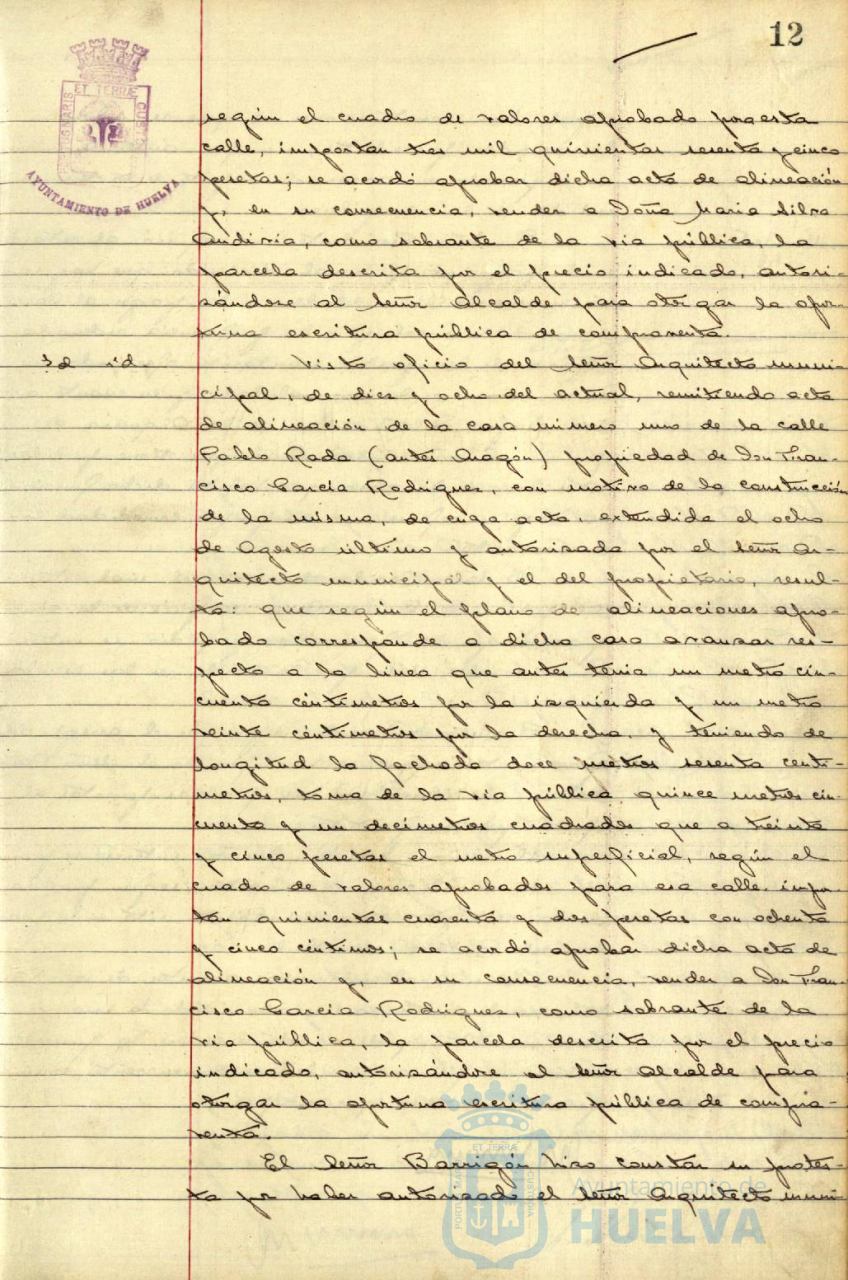 12
ET TERRÆ
AYUNTAMIENTO DE HUELVA
según el cuadro de valores aprobado para esta
calle, importan tres mil quinientas sesenta y cinco
pesetas; se acordó aprobar dicha acta de alineación
y, en su consecuencia, vender a Doña Maria Silva
como sobrante de la via pública, la
parcela descrita por el precio indicado, autori-
sándose al Señor Alcalde para otorgar la opor-
tuna escritura pública de compraventa.
Id id.
Visto oficio del Señor Arquitecto muni-
cipal, de diez y ocho del actual, remitiendo acta
de alineación de la casa número uno de la calle
Pablo Rada (antes Aragón) propiedad de Don Fran-
cisco García Rodriguez, con motivo de la construcción
de la misma, de cuya acta, extendida el ocho
de Agosto último y autorizada por el Señor Ar-
quitecto municipal y el del propietario, resul-
ta: que según el plano de alineaciones apro-
bado corresponde a dicha casa avanzar res-
pecto a la línea que antes tenia un metro cin-
cuenta céntimetros por la izquierda y un metro
veinte céntimetros por la derecha, y teniendo de
longitud la fachada doce metros sesenta centi-
metros, toma de la via pública quince metros cin-
cuenta y un decímetros cuadrados que a treinta
y cinco pesetas el metro superficial, según el
cuadro de valores aprobados para esa calle, impor-
tan quinientas cuarenta y dos pesetas con ochenta
y cinco céntimos; se acordó aprobar dicha acta de
alineación y, en su consecuencia, vender a Don Fran-
cisco García Rodriguez, como sobrante de la
via pública, la parcela descrita por el precio
indicado, autorizándose al Señor Alcalde para
otorgar la oportuna escritura pública de compra-
venta.
El Señor Barrigón hizo constar su protes-
ta por haber autorizado el Señor Arquitecto muni-
ET TERRÆ
Ayuntamiento de
HUELVA